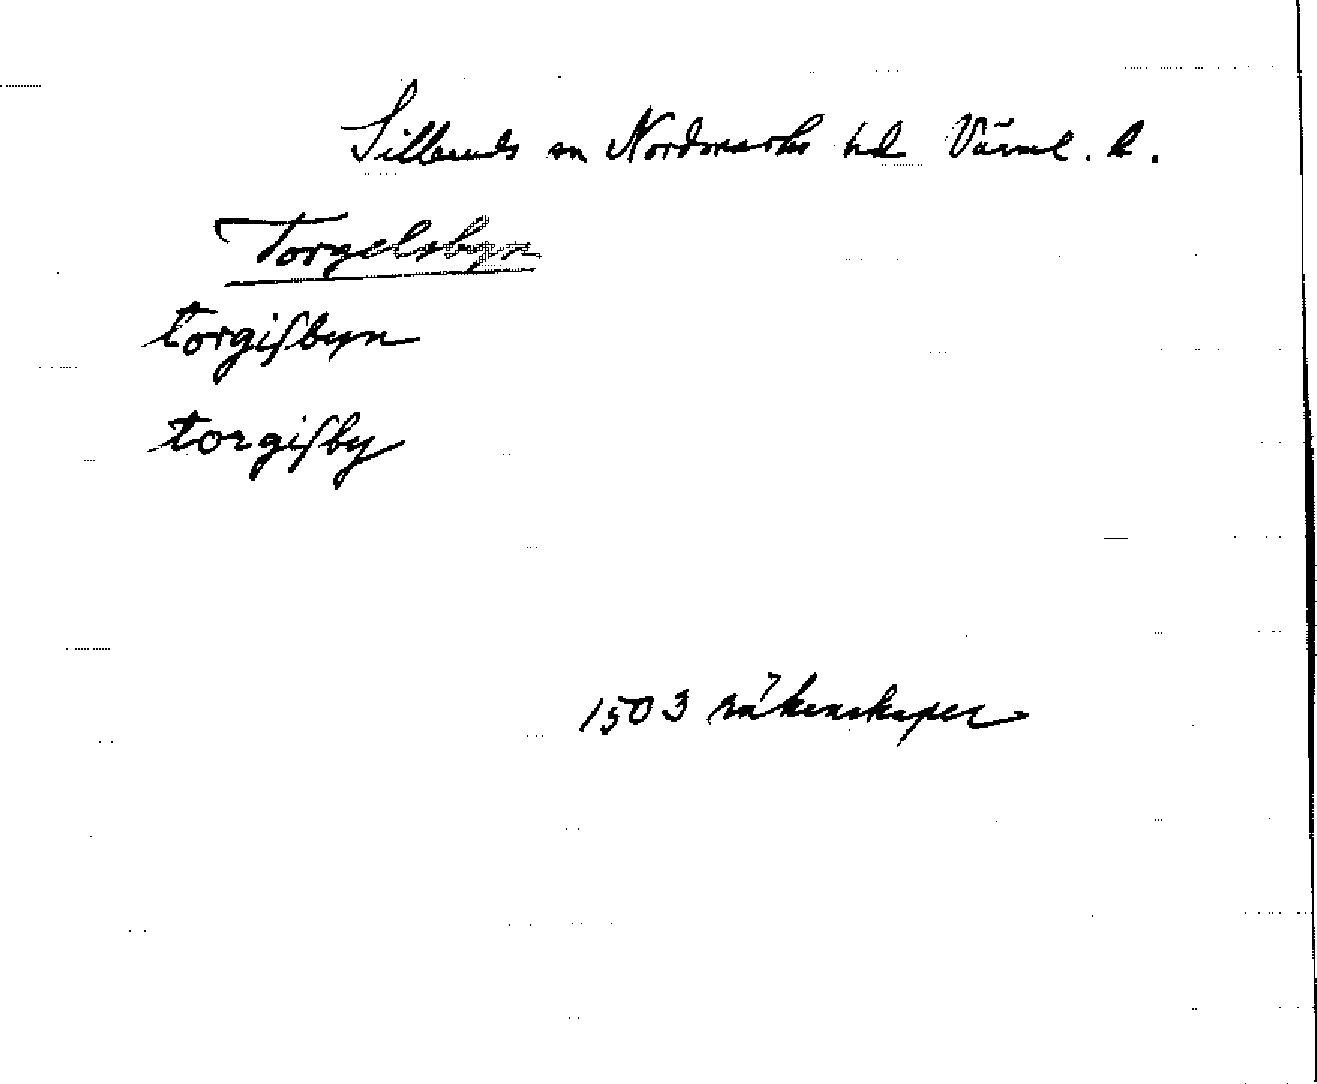 Silbands sn Nordmarks hd Värml. l.
Torgelsbyn
torgiſbyn
torgiſby
1503 räkenskaper